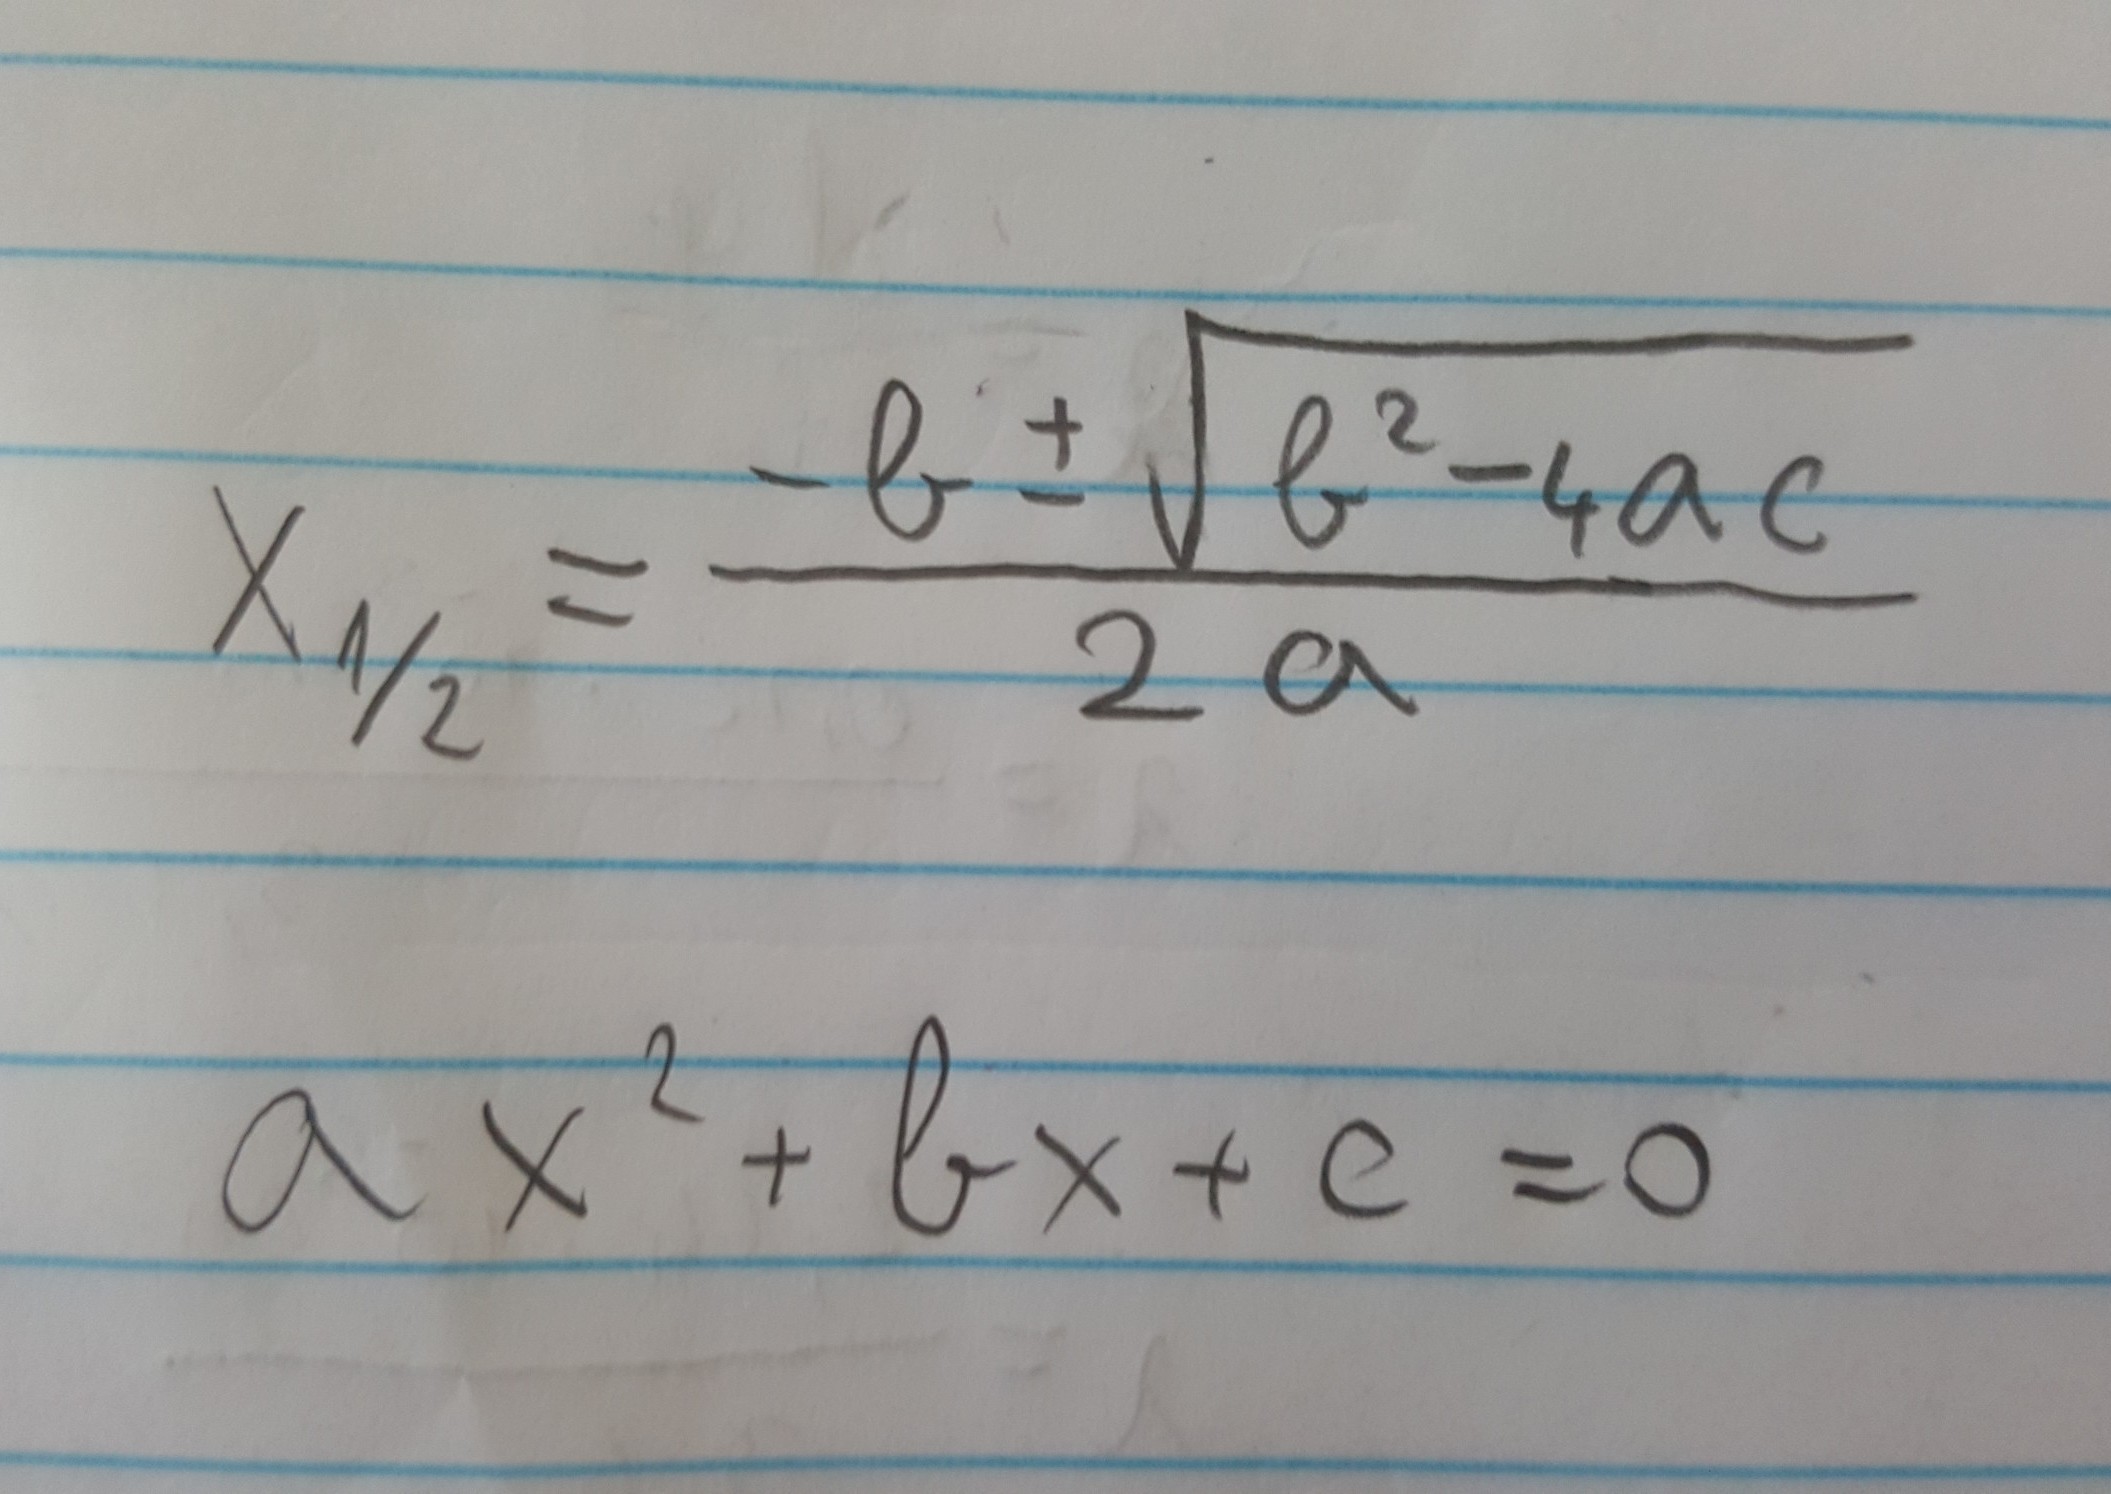 x₁/₂ = (-b ± √(b² - 4ac)) / (2a)
ax² + bx + c = 0